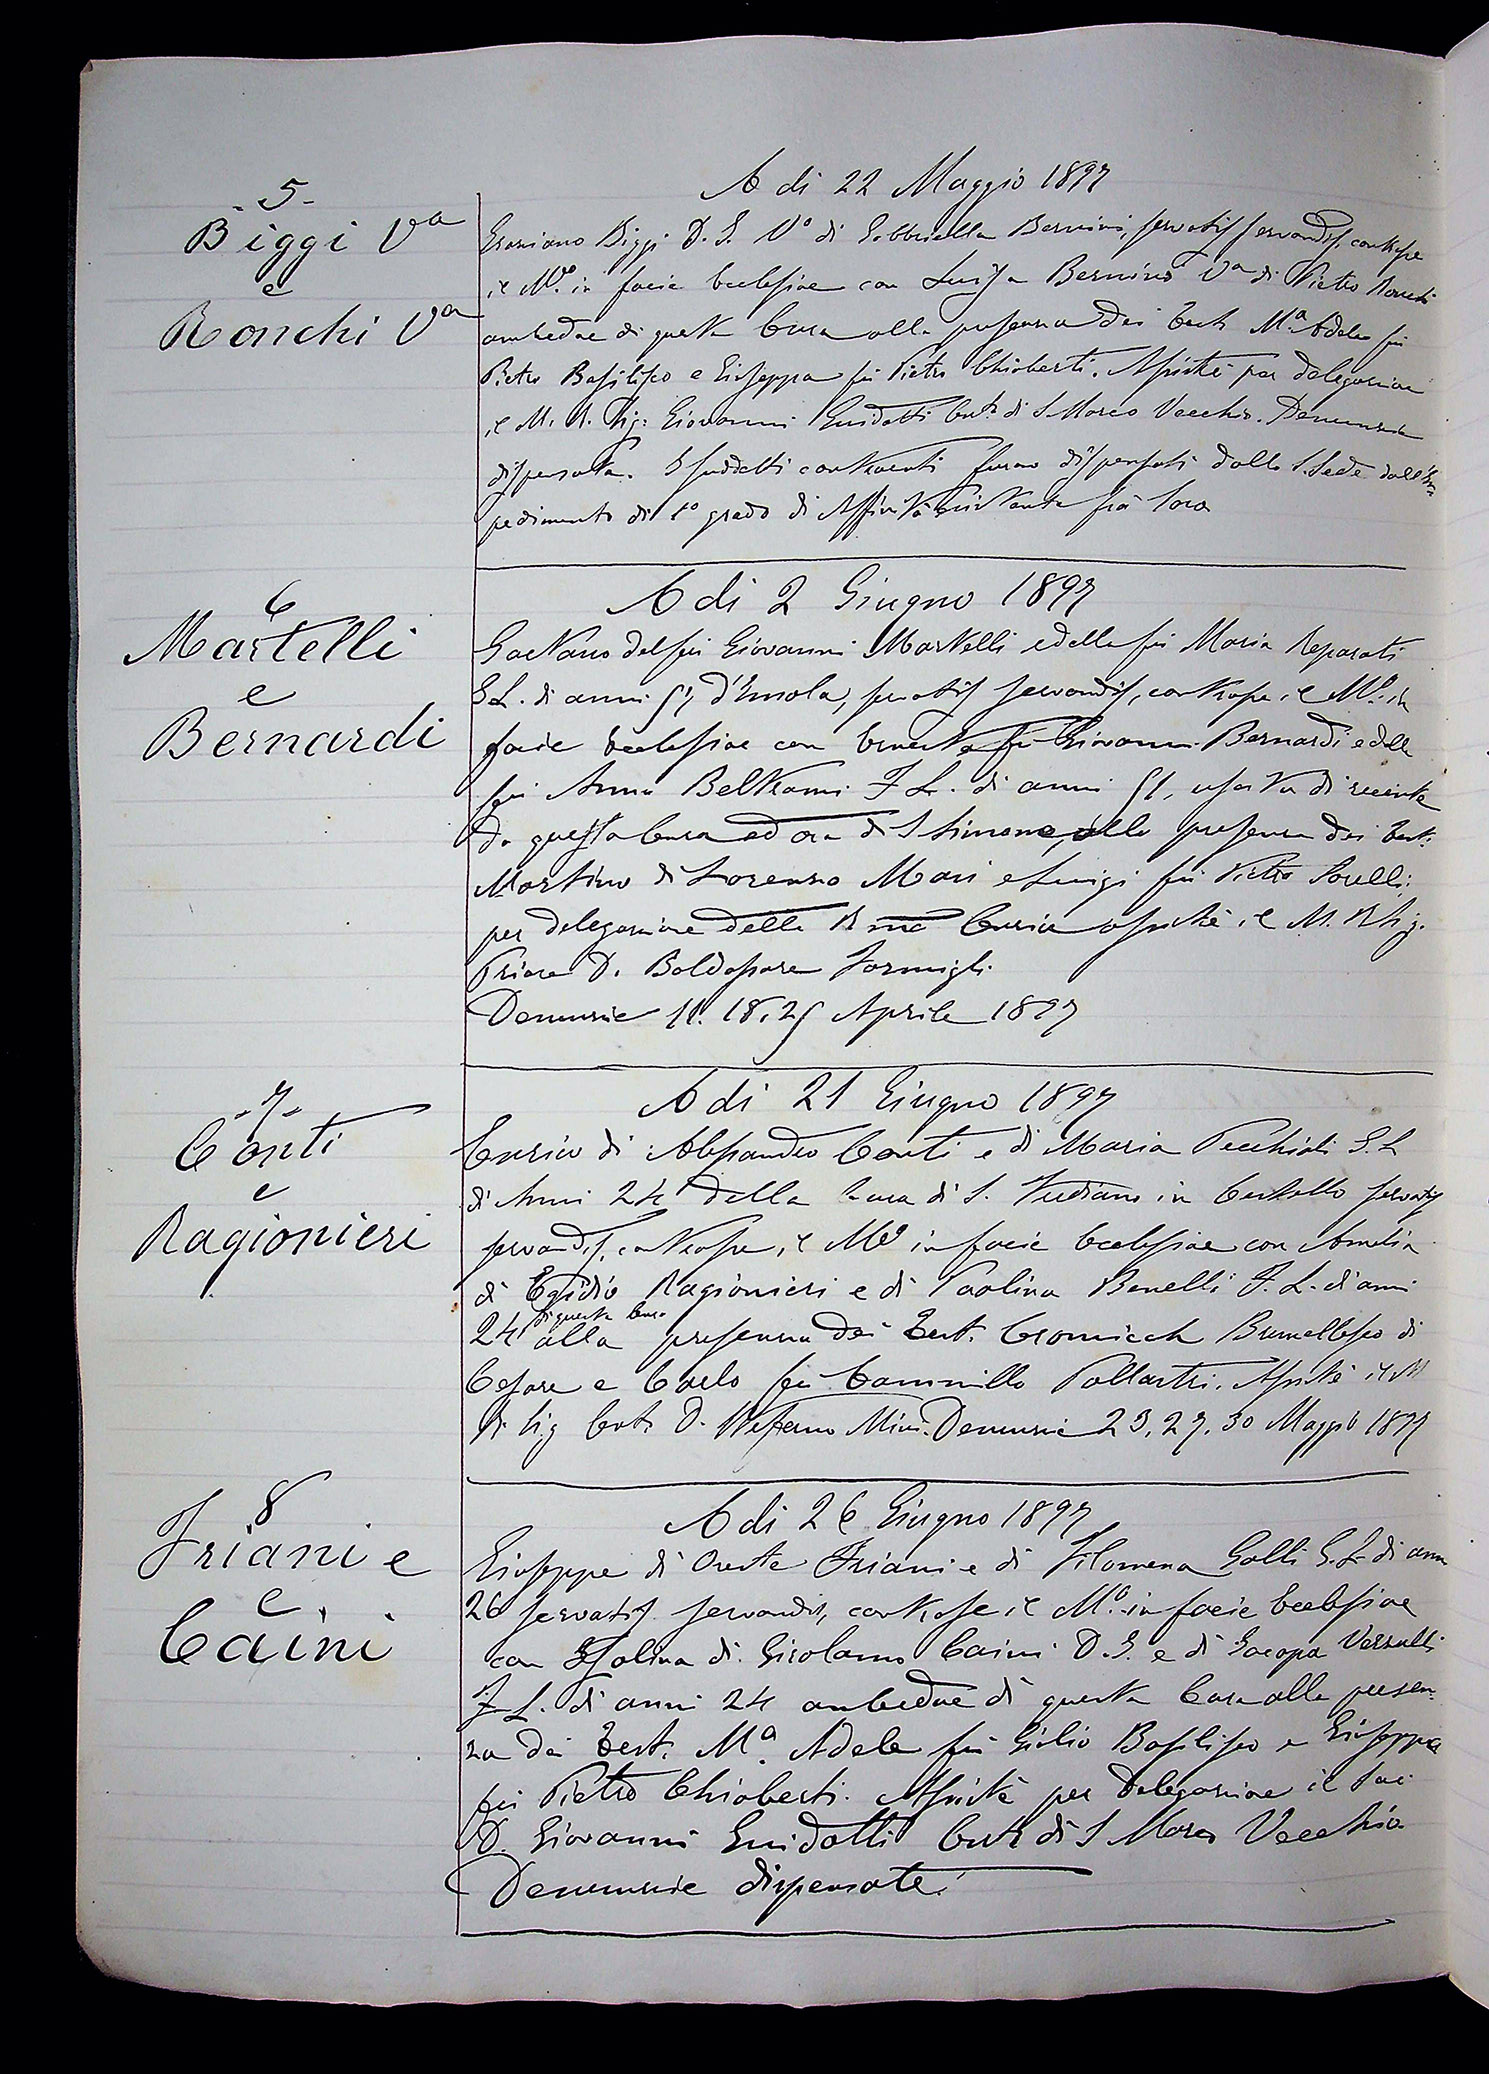 -5-
Biggi Vo
e
Ronchi Va
A di 22 Maggio 1897
Graziano Biggi D. G. Vo di Gabbriella Bernini, servatis servandis, contrasse
il Mo. in facie Ecclesiae con Luisa Bernini Va di Pietro Ronchi
ambedue di questa Cura alla presenza dei Test. Ma Adele fu
Pietro Basilisco e Giuseppa fu Pietro Chioberti. Assisté per delegazione
il M. R. Sig: Giovanni Guidotti Cuto. di S Marco Vecchio. Denunzia
dispensata. I suddetti contraenti furono dispensati dalla S. Sede dall'Im=
pedimento di 1o grado di Affinità esistente fra loro
6
Martelli
e
Bernardi
A di 2 Giugno 1897
Gaetano del fu Giovanni Martelli e della fu Maria Reparati
G L. di anni 57, d'Imola, servatis servandis, contrasse il Mo. in
facie Ecclesiae con Ernesta fu Giovanni Bernardi e della
fu Anna Beltrami F L. di anni 51, uscita di recente
da questa Cura ed ora di S Simone, alla presenza dei Test.
Martino di Lorenzo Mari e Luigi fu Pietro Porelli.
per delegazione della R ma Curia assisté il M. R Sig.
Priore D. Baldassare Formigli.
Denunzie 11. 18. 25 Aprile 1897
-7-
Conti
e
Ragionieri
A di 21 Giugno 1897
Enrico di Alessandro Conti e di Maria Pecchioli G. L
di Anni 24 della Cura di S. Frediano in Cestello servatis
servandis, contrasse il Mo in facie Ecclesiae con Amelia
di Egidio Ragionieri e di Paolina Benelli F. L. di anni
24 di questa Cura alla presenza dei Test. Cromicch Brunellesco di
Cesare e Carlo fu Cammillo Pollastri. Assisté il M
R Sig Cuto D. Stefano Mini. Denunzie 23, 27, 30 Maggio 1897
8
Friani e
e
Caini
A di 26 Giugno 1897
Giuseppe di Oreste Friani e di Filomena Galli G. L. di anni
26 servatis servandis, contrasse il Mo. in facie Ecclesiae
con Isolina di Girolamo Caini D. G. e di Jacopa Vezzulli
F L. di anni 24 ambedue di questa Cura alla presen=
za dei Test. Ma. Adele fu Giulio Basilisco e Giuseppa
fu Pietro Chioberti. Assisté per Delegazione il Sac
D. Giovanni Guidotti Cuto di S Marco Vecchio
Denunzie dispensate.